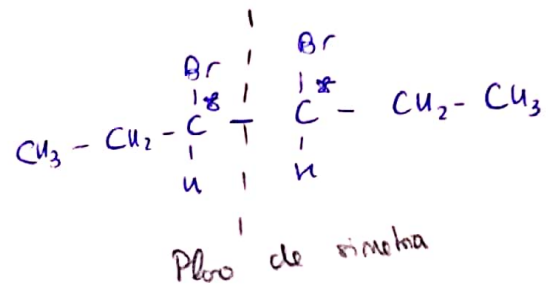 Br Br
CH3 - CH2 - C* - C* - CH2 - CH3
H H
Plano de simetria